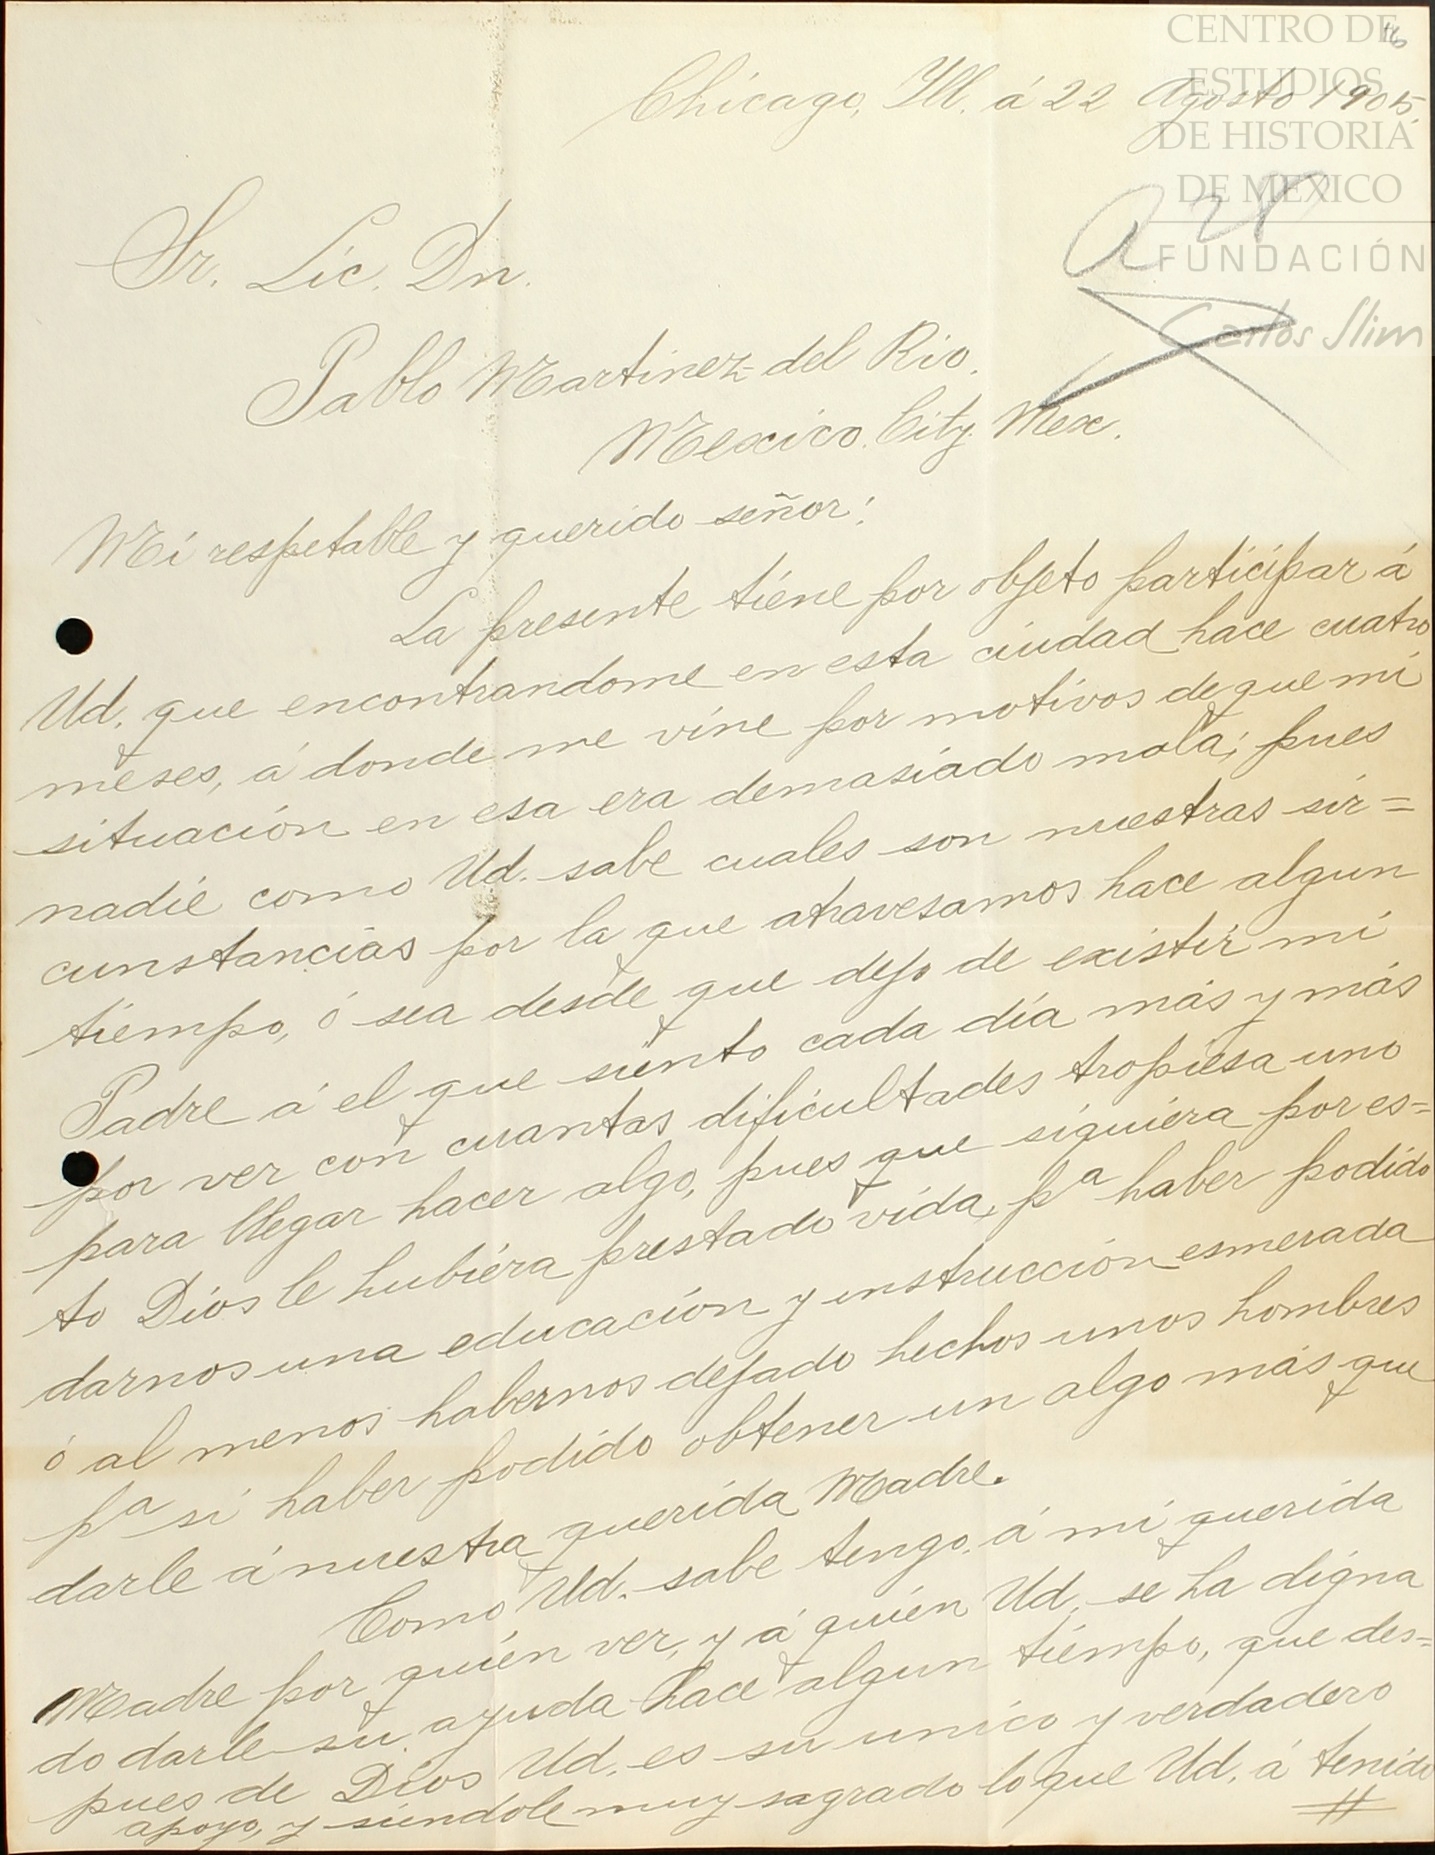 CENTRO DE
ESTUDIOS
DE HISTORIA
DE MEXICO
FUNDACIÓN
Carlos Slim
Chicago, Ill. á 22 Agosto 1905.
Sr. Lic. Dn.
Pablo Martinez del Rio.
Mexico. City. Mex.
Mi respetable y querido señor:
La presente tiene por objeto participar á
Ud. que encontrandome en esta ciudad hace cuatro
meses, á donde me vine por motivos de que mi
situación en esa era demasiado mala; pues
nadie como Ud. sabe cuales son nuestras sir=
cunstancias por la que atravesamos hace algun
tiempo, ó sea desde que dejo de existir mi
Padre á el que siento cada día más y más
por ver con cuantas dificultades tropiesa uno
para llegar hacer algo, pues que siquiera por es=
to Dios le hubiera prestado vida, pª haber podido
darnos una educación y instrucción esmerada
ó al menos habernos dejado hechos unos hombres
pª si haber podido obtener un algo más que
darle á nuestra querida Madre.
Como Ud. sabe tengo, á mi querida
Madre por quien ver, y á quien Ud. se ha digna
do darle su ayuda hace algun tiempo, que des=
pues de Dios Ud. es su unico y verdadero
apoyo, y siendole muy sagrado lo que Ud. á tenido